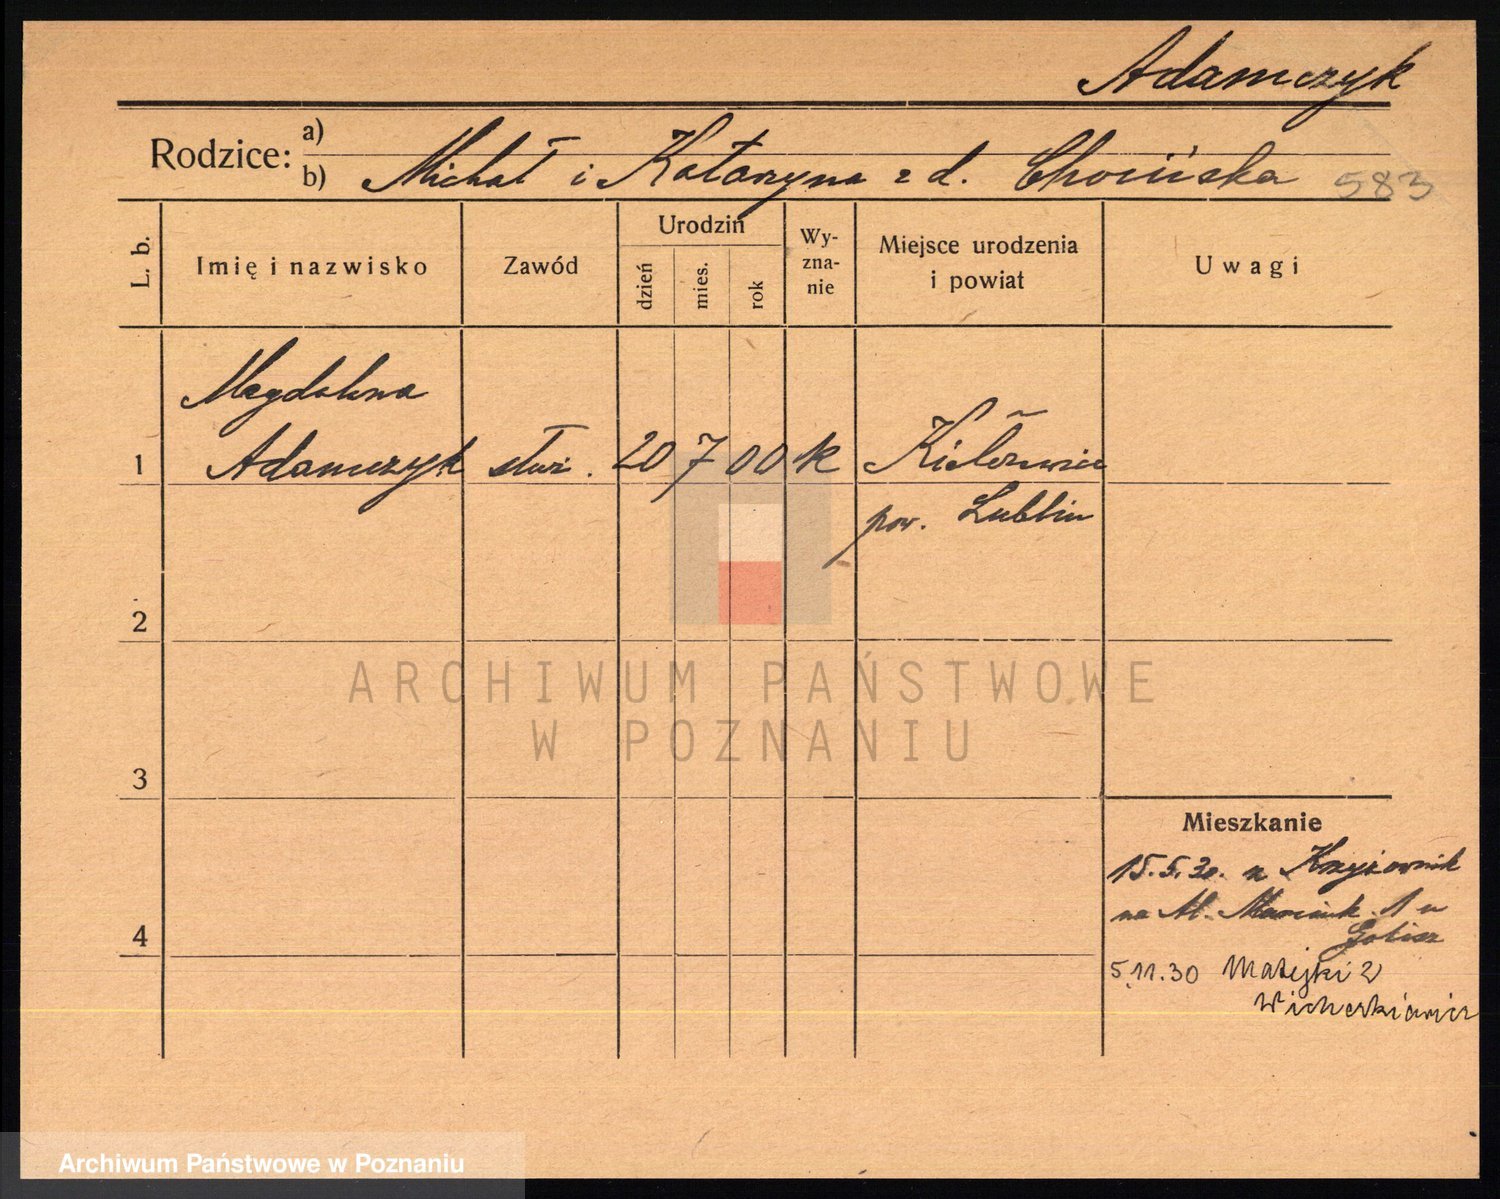 Adamczyk
Rodzice:
a)
b) Michał i Katarzyna z d. Choińska 583
L. b.
Imię i nazwisko
Zawód
Urodzin
dzień
mies.
rok
Wy-
zna-
nie
Miejsce urodzenia
i powiat
Uwagi
Magdalena
1 Adamczyk służ. 20 7 00 k
pow. Lublin
2
3
4
Mieszkanie
15.5.30. z Krzyżownik
na Marcink. 1 u
5.11.30 Matejki 2
Wicherkiewicz
ARCHIWUM PAŃSTWOWE
W POZNANIU
Archiwum Państwowe w Poznaniu